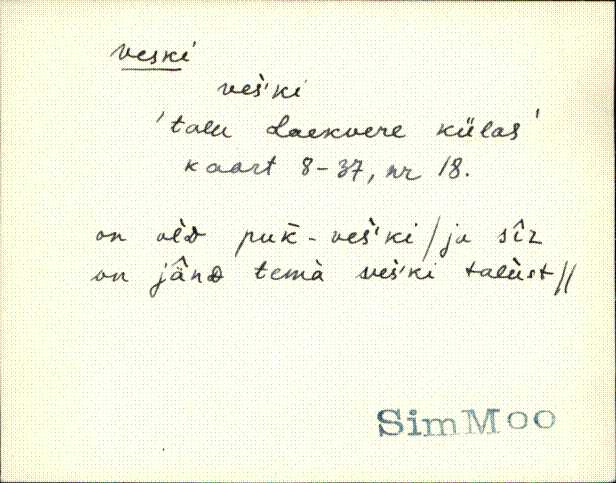 veski
veš́ki
'talu Laekvere külas'
kaart 8-37, nr 18.
on old puk̄-veš́ki / ja sîz
on jând temà veš́ki talùst //
SimMoo